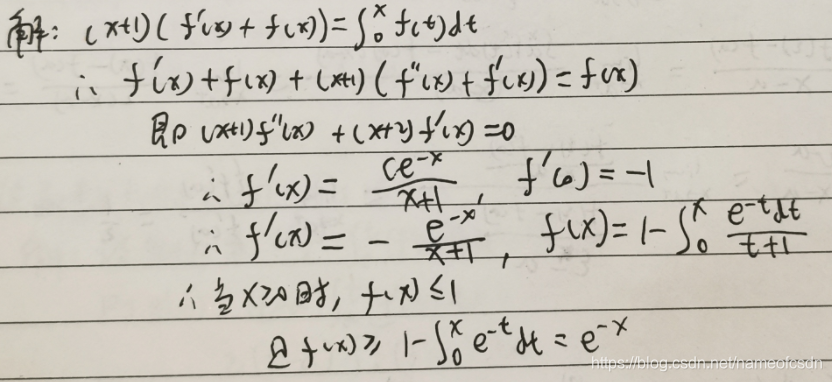 解: (x+1)(f'(x) + f(x)) = ∫₀ˣ f(t)dt
∴ f'(x) + f(x) + (x+1)(f''(x) + f'(x)) = f(x)
即 (x+1)f''(x) + (x+2)f'(x) = 0
∴ f'(x) = Ce^{-x}/(x+1), f'(0) = -1
∴ f'(x) = - e^{-x}/(x+1), f(x) = 1 - ∫₀ˣ e^{-t}dt/(t+1)
∴ 当 x≥0 时, f(x) ≤ 1
且 f(x) ≥ 1 - ∫₀ˣ e^{-t}dt = e^{-x}
https://blog.csdn.net/nameofcsdn